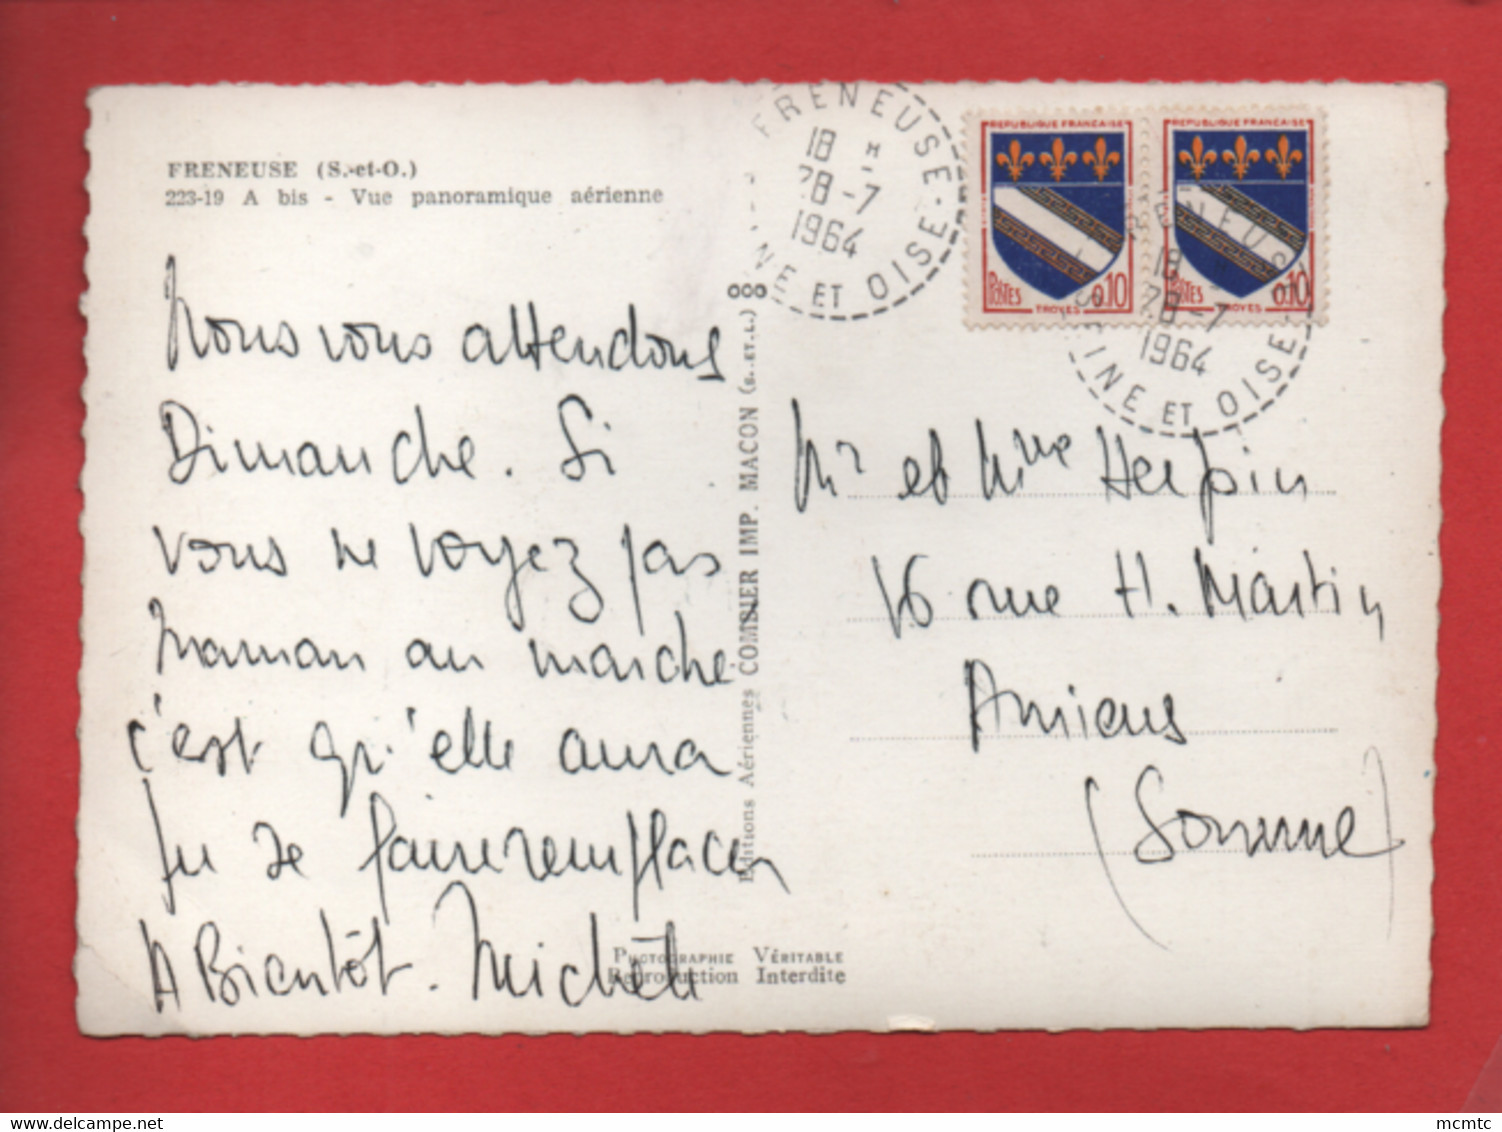 FRENEUSE (S.-et-O.)
223-19 A bis - Vue panoramique aérienne
Nous vous attendons
Dimanche. Si
vous ne voyez pas
maman au marche
c'est qu'elle aura
pu se faire remplacer
A Bientôt. Michèle
Editions Aériennes COMBIER IMP. MACON (S.-ET-L.)
PHOTOGRAPHIE VÉRITABLE
Reproduction Interdite
FRENEUSE
18 H
28-7
1964
SEINE ET OISE
REPUBLIQUE FRANÇAISE
POSTES 0,10
TROYES
REPUBLIQUE FRANÇAISE
POSTES 0,10
TROYES
FRENEUSE
18 H
28-7
1964
SEINE ET OISE
Mr et Mme Herpin
16 rue H. Martin
Amiens
(Somme)
mcmtc